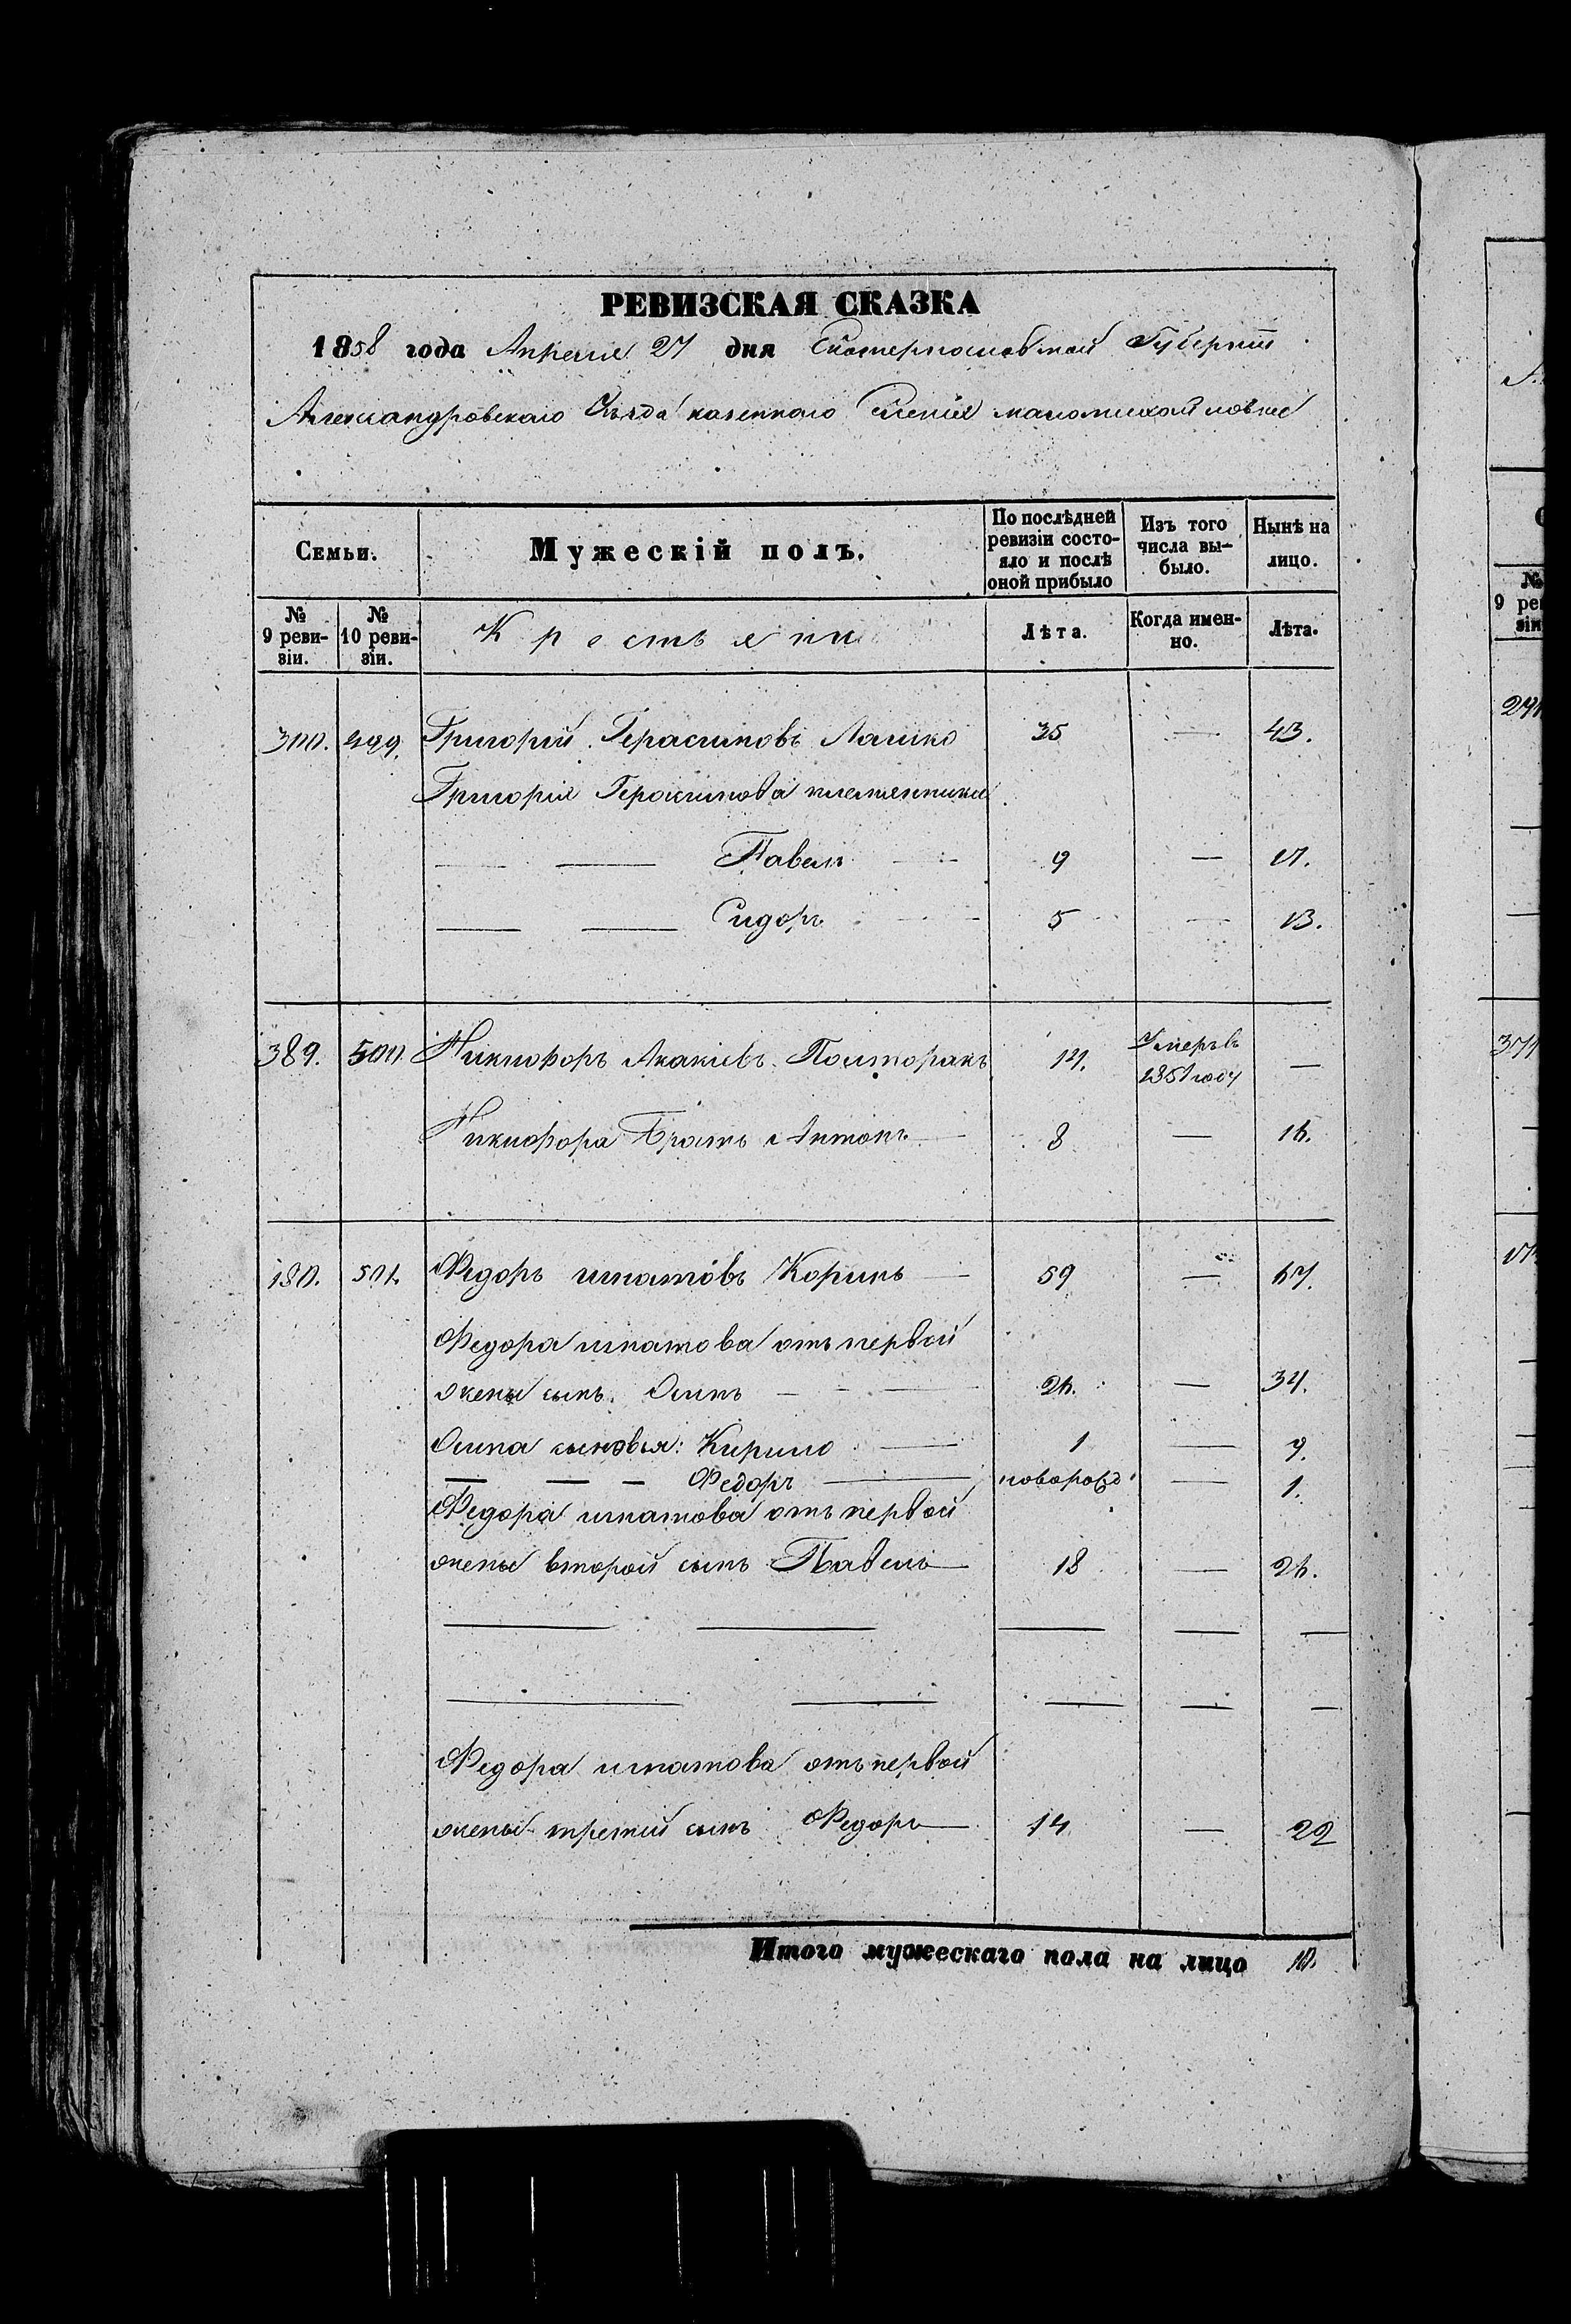 РЕВИЗСКАЯ СКАЗКА
1858 года Апреля 27 дня Екатеринославской Губерніи
Александровскаго Уѣзда казеннаго Селенія маломихайловке
Семьи.
Мужескій полъ.
По послѣдней ревизіи состо-яло и послѣ оной прибыло
Изъ того числа вы-было.
Нынѣ на лицо.
№ 9 реви-зіи.
№ 10 реви-зіи.
Крестьяни
Лѣта.
Когда имен-но.
Лѣта.
300. 499. Григорій Герасимовъ Лашко 35 — 43.
Григорія Герасимова племянники
— — Павелъ — 9 — 17.
— — Сидоръ — 5 — 13.
389. 500. Никифоръ Акакіевъ Полторакъ 14. Умеръ въ 1851 году —
Никифора Братъ Антонъ — 8 — 16.
180. 501. Федоръ игнатовъ Коринь — 59 — 67.
Федора игнатова отъ первой
жены сынъ. Осипъ — — — 26. — 34.
Осипа сыновья: Кирило — 1 — 9.
— — — Федоръ — новорожд — 1.
Федора игнатова отъ первой
жены второй сынъ Павелъ — 18 — 26.
— — — — —
— — — — —
Федора игнатова отъ первой
жены третий сынъ Федоръ — 14 — 22
Итого мужескаго пола на лицо 10.
9 ре
зіи